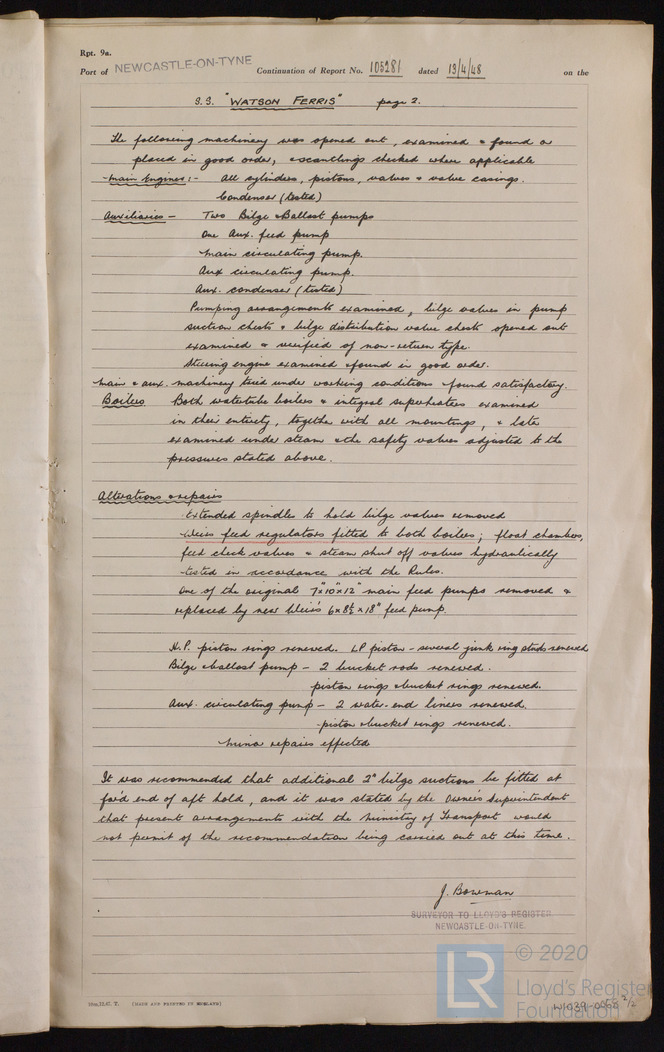 Rpt. 9a.
Port of NEWCASTLE-ON-TYNE Continuation of Report No. 105281 dated 19/4/48 on the
S.S. "WATSON FERRIS" page 2.
The following machinery was opened out, examined & found or
placed in good order, & scantlings checked where applicable
Main Engines:- All cylinders, pistons, valves & valve casings.
Condenser (tested)
Auxiliaries - Two Bilge & Ballast pumps
One Aux. feed pump
Main circulating pump.
Aux circulating pump.
Aux. condenser (tested)
Pumping arrangements examined, bilge valves in pump
suction chests & bilge distribution valve chests opened out
examined & verified of non-return type.
Steering engine examined & found in good order.
Main & aux. machinery tried under working conditions & found satisfactory.
Boilers Both watertube boilers & integral superheaters examined
in their entirety, together with all mountings, & later
examined under steam & the safety valves adjusted to the
pressures stated above.
Alterations & repairs
Extended spindle to hold bilge valves removed
Weirs feed regulators fitted to both boilers; float chambers,
feed check valves & steam shut off valves hydraulically
tested in accordance with the Rules.
One of the original 7"x10"x12" main feed pumps removed &
replaced by new Weirs 6x8½x18" feed pump.
H.P. piston rings renewed. LP piston - several junk ring studs renewed
Bilge & ballast pump - 2 bucket rods renewed.
piston rings & bucket rings renewed.
Aux. circulating pump - 2 water-end liners renewed.
piston & bucket rings renewed.
Minor repairs effected
It was recommended that additional 2" bilge suctions be fitted at
for'd end of aft hold, and it was stated by the Owners Superintendent
that present arrangements with the Ministry of Transport would
not permit of the recommendation being carried out at this time.
J. Bowman
SURVEYOR TO LLOYD'S REGISTER
NEWCASTLE-ON-TYNE.
LR © 2020
Lloyd's Register
Foundation
W1039-0068 2/2
(MADE AND PRINTED IN ENGLAND)